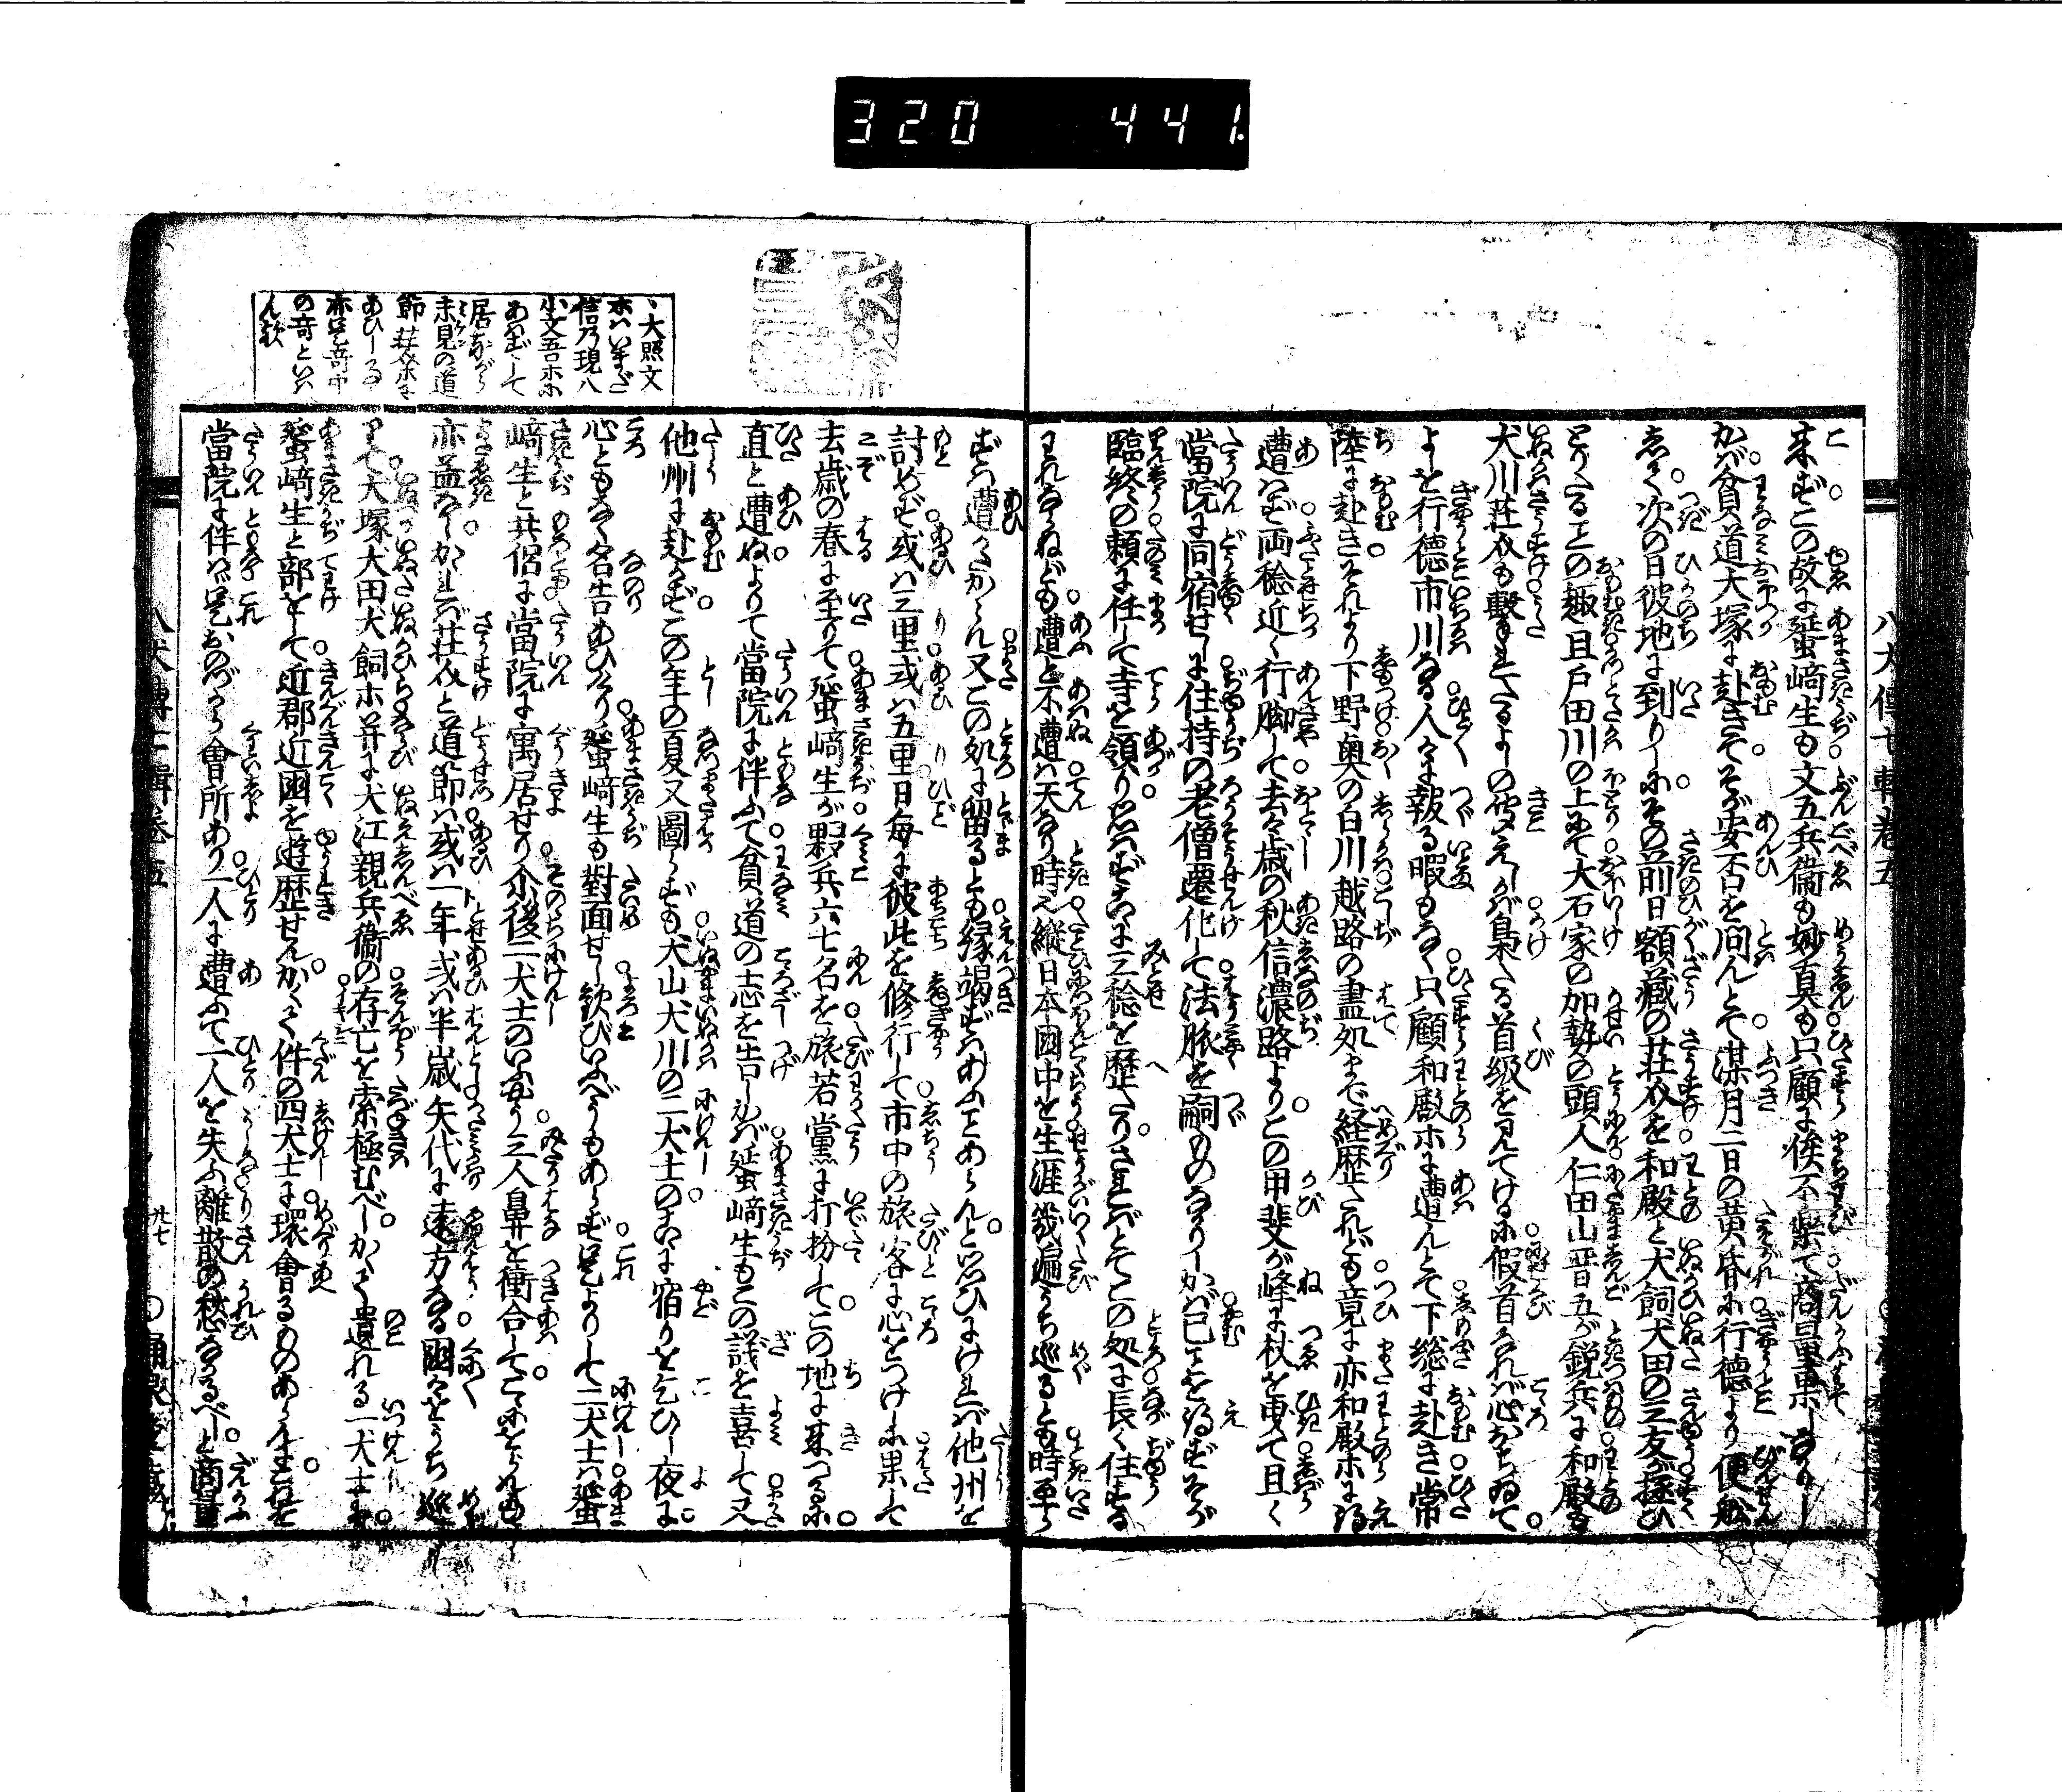 320 441
八犬傳七輯巻五
来ずこの故に蜑﨑生も文五兵衛も妙真も只顧に俟不樂て商量果しなかりし
かバ貧道大塚に赴きてそが安否を問んとて某月二日の黄昏に行徳より便舩
しく次の日彼地に到りしにその前日額蔵の荘介を和殿と犬飼犬田の三友が拯ひ
とりたる工の趣且戸田川の上にて大石家の加勢の頭人仁田山晋五が鋭兵に和殿
犬川荘介も撃れたるよしの聞えしが梟たる首級を見てけるに假首なれバ心おちゐて
よしを行徳市川なる人々に報る暇もなく只顧和殿ホに遭んとて下総に赴き常
陸に赴きそれより下野奥の白川越路の盡処まで経歴たれども竟に亦和殿ホに得
遭ハず両稔近く行脚して去々歳の秋信濃路よりこの甲斐が峰に杖を曳て且く
當院に同宿せしに住持の老僧遷化して法脉を嗣ものなかりしかバ已ことを得ずそが
臨終の頼に任して寺を領り思ハずこゝに三稔を歴たりさればとてこの処に長く住する
われならねども遭と不遭ハ天なり時也縦日本國中を生涯幾遍うち巡るとも時至ら
ずハ遭がたからん又この処に留るとも縁竭ずハあふこともあらんと思ひにけれバ他州を
討めず或ハ三里或ハ五里日毎に彼此を修行して市中の旅客に心をつけしに果して
去歳の春に至りて蜑﨑生が夥兵六七名を旅若黨に打扮してこの地に来つるに
直と遭ぬよりて當院に伴ふて貧道の志を告しかバ蜑﨑生もこの議を喜して又
他州に赴かずこの年の夏又圖らずも犬山犬川の二犬士のこゝに宿りを乞ひし夜に
心ともなく名告あひけり蜑﨑生も對面せし歓びいふべうもあらず是よりして二犬士ハ蜑
﨑生と共侶に當院に寓居せり尓後二犬士のいふやう三人鼻を衝合してこゝにをらんも
亦益なしかれバ荘介と道節ハ或ハ一年或ハ半歳矢代に遠方なる國々をうち巡
りて大塚犬田犬飼ホ并に犬江親兵衛の存亡を索極むべしかくて遺れる一犬士ハ
蜑﨑生と部をして近郡近國を遊歴せんかくて件の四犬士に環會るものあらんときを
當院に伴ハゞ是おのづから會所あり一人に遭ふて一人を失ふ離散の愁なかるべしと商量
、大照文
ホハいまだ
信乃現八
小文吾ホに
あハずして
居ながら
未見の道
節荘介ホに
あひしる
亦是奇中
の奇といハ
ん歟
八犬傳七輯巻五